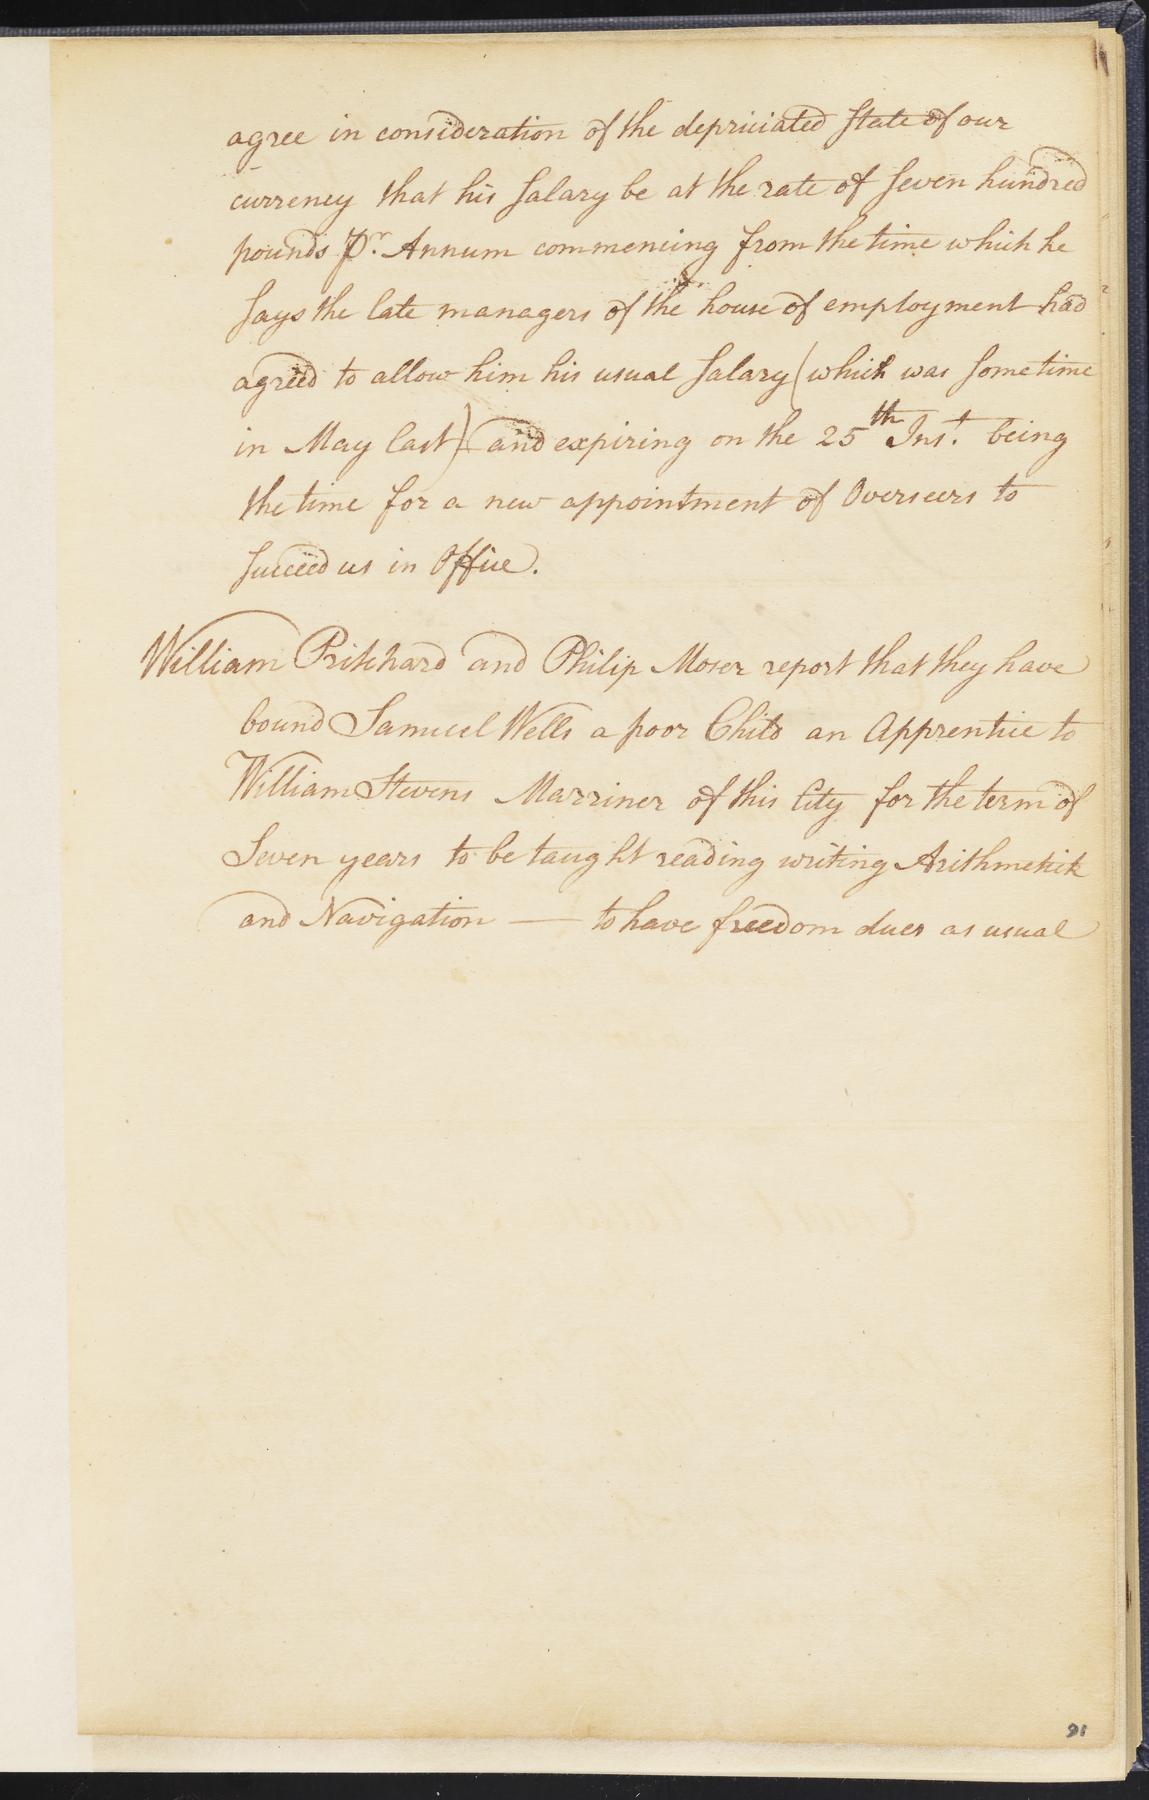 agree in consideration of the depriciated State of our
currency that his Salary be at the rate of Seven hundred
pounds Pr. Annum commencing from the time which he
Says the late managers of the house of employment had
agreed to allow him his usual Salary (which was Sometime
in May last) and expiring on the 25th Inst. being
the time for a new appointment of Overseers to
Succeed us in Office.
William Pritchard and Philip Moser report that they have
bound Samuel Wells a poor Child an Apprentice to
William Stevens Marriner of this City for the term of
Seven years to be taught reading writing Arithmetick
and Navigation — to have freedom dues as usual
91